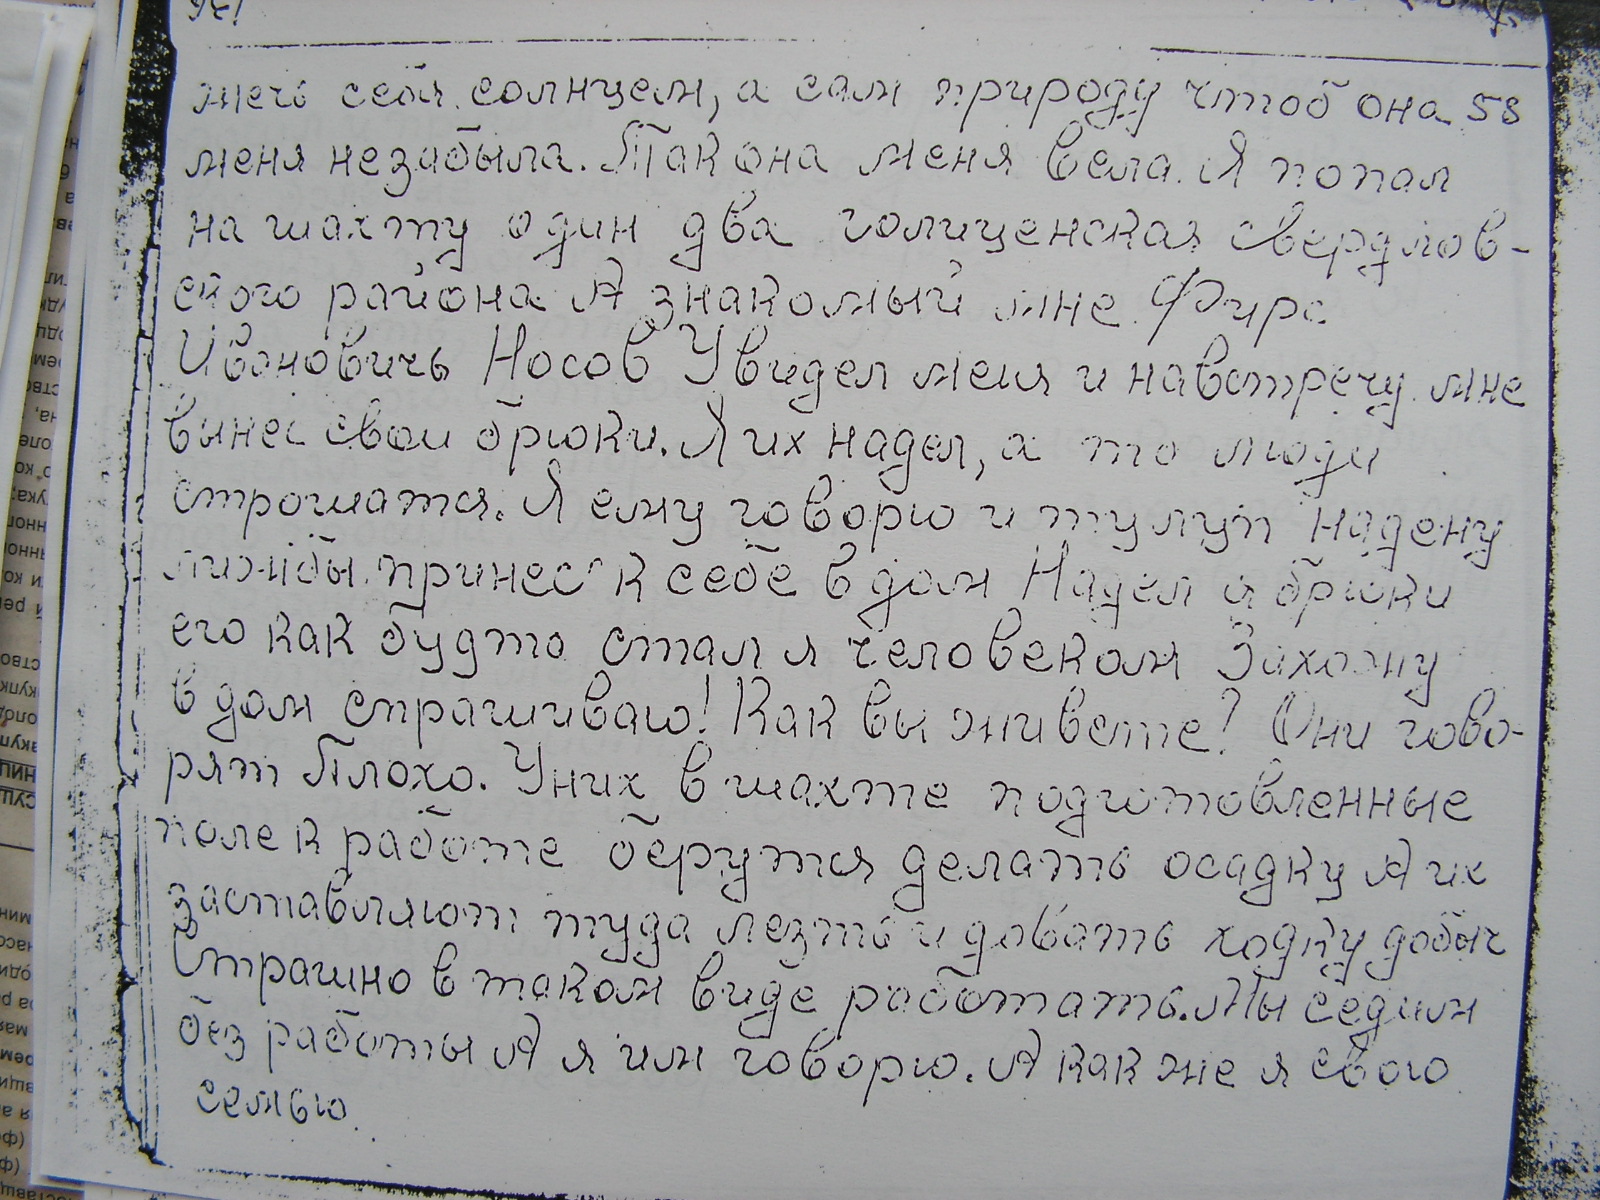 жечь себя солнцем, а сам природу чтоб она 58
меня незабыла. Так она меня вела. Я попал
на шахту один два голиценская свердлов-
ского района А знакомый мне Фирс
Ивановичь Носов Увидел меня и навстречу мне
вынес свои брюки. Я их надел, а то люди
строшатся. Я ему говорю и тулуп надену
лижбы принес к себе в дом Надел я брюки
его как будто стал я человеком Захожу
в дом спрашиваю! Как вы живете? Они гово-
рят Плохо. У них в шахте подготовленные
поле к работе берутся делать осадку А их
заставляют туда лезть и довать добыч
Страшно в таком виде работать. Мы седим
без работы А я им говорю. А как же я свою
семью.